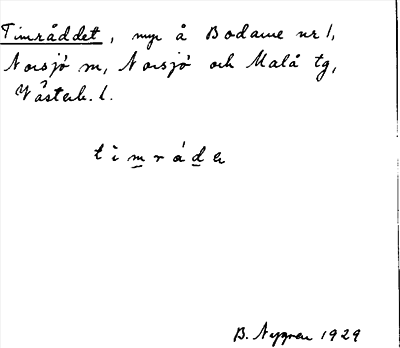 Timråddet, myr å Bodarne nr 1,
Norsjö sn, Norsjö och Malå tg,
Västerb. l.
timråde
B. Nygren 1929